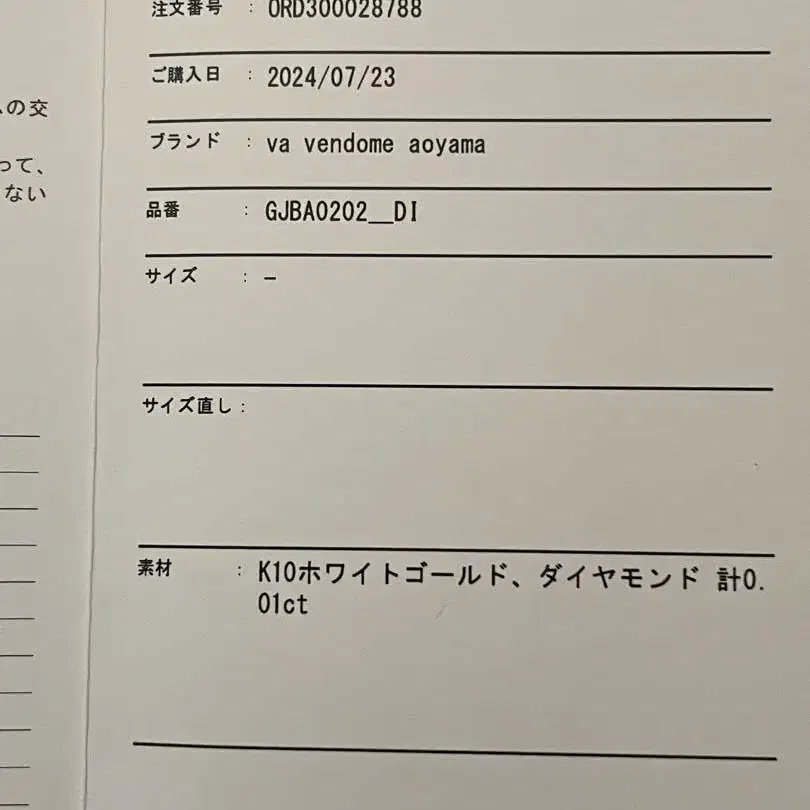 注文番号 : ORD300028788
ご購入日 : 2024/07/23
の交
ブランド : va vendome aoyama
って、
ない
品番 : GJBA0202__DI
サイズ : −
サイズ直し :
素材 : K10ホワイトゴールド、ダイヤモンド 計0.
01ct